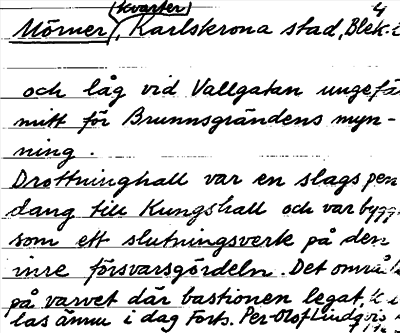 kvarter 4
Mörner, Karlskrona stad, Blek
och låg vid Vallgatan ungefä
mitt för Brunnsgrändens myn-
ning.
Drottninghall var en slags pen
dang till Kungshall och var bygg
som ett slutningsverk på den
inre försvarsgördeln. Det områ
på varvet där bastionen legat,
las ännu i dag Forts. Per-Olof Lindqvis